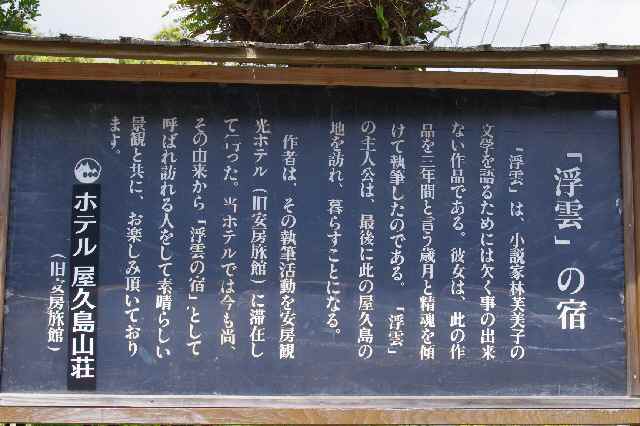 「浮雲」の宿
「浮雲」は、小説家林芙美子の
文学を語るためには欠く事の出来
ない作品である。彼女は、此の作
品を三年間と言う歳月と精魂を傾
けて執筆したのである。「浮雲」
の主人公は、最後に此の屋久島の
地を訪れ、暮らすことになる。
作者は、その執筆活動を安房観
光ホテル（旧安房旅館）に滞在し
て行った。当ホテルでは今も尚、
その由来から「浮雲の宿」として
呼ばれ訪れる人をして素晴らしい
景観と共に、お楽しみ頂いており
ます。
ホテル屋久島山荘
（旧・安房旅館）